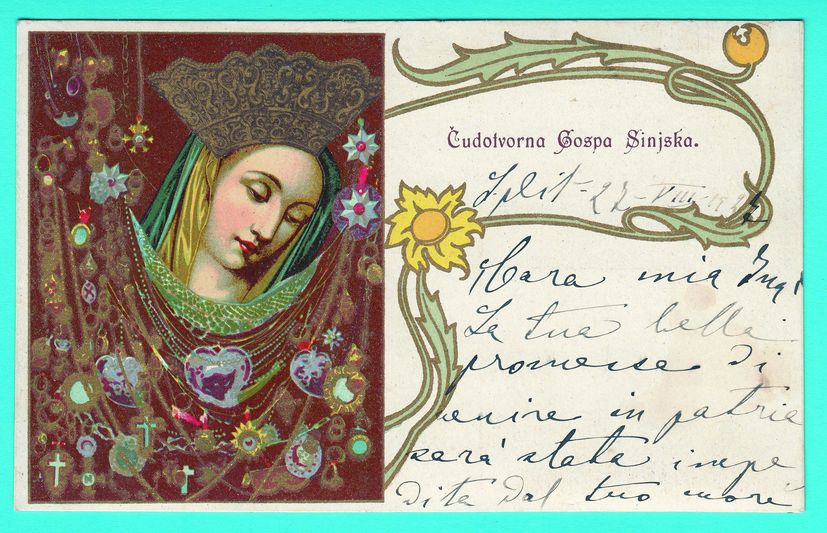 Čudotvorna Gospa Sinjska.
Split - 27 - VIII
Cara mia
La tua bella
promessa di
venire in patria
sarà stata impe
dita dal tuo